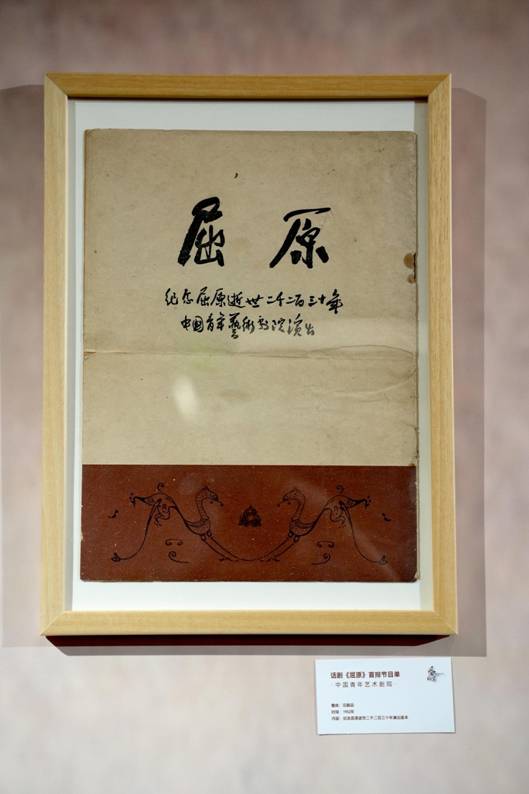 屈原
纪念屈原逝世二千二百三十年
中国青年藝術剧院演出
话剧《屈原》首排节目单
中国青年艺术剧院
时间：1953年
内容：纪念屈原逝世二千二百三十年演出版本